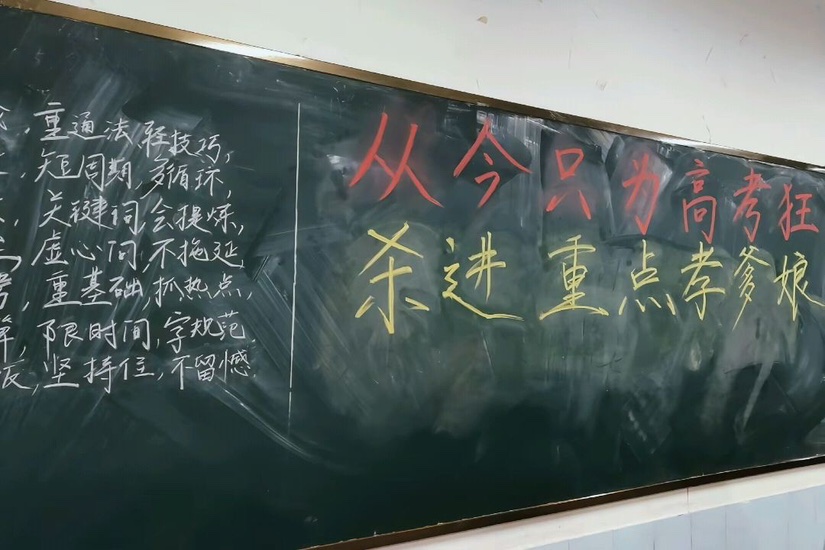 ，重通法，轻技巧，
，短周期，多循环，
，关键词，会提炼，
，虚心问，不拖延
，重基础，抓热点，
，限时间，字规范．
，坚持住，不留憾．
从今只为高考狂
杀进重点孝爹娘